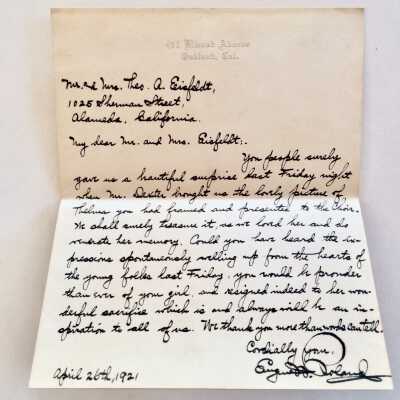 Oakland, Cal.
Mr. and Mrs. Theo. A. Eisfeldt,
1025 Sherman Street,
Alameda, California.
My dear Mr. and Mrs. Eisfeldt:.
You people surely
gave us a beautiful surprise last Friday night
when Mr. Dexter brought us the lovely picture of
Thelma you had framed and presented to the Choir.
We shall surely treasure it, as we loved her and do
venerate her memory. Could you have heard the ex-
pressions spontaneously welling up from the hearts of
the young folks last Friday, you would be prouder
than ever of your girl, and resigned indeed to her won-
derful sacrifice which is and always will be an in-
spiration to all of us. We thank you more than words can tell.
Cordially yours,
April 26th, 1921